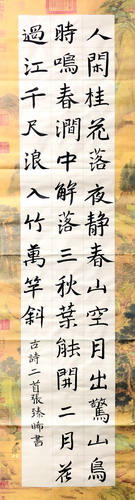 人閑桂花落夜静春山空月出驚山鳥
時鳴春澗中解落三秋葉能開二月花
過江千尺浪入竹萬竿斜
古詩二首張臻晞書